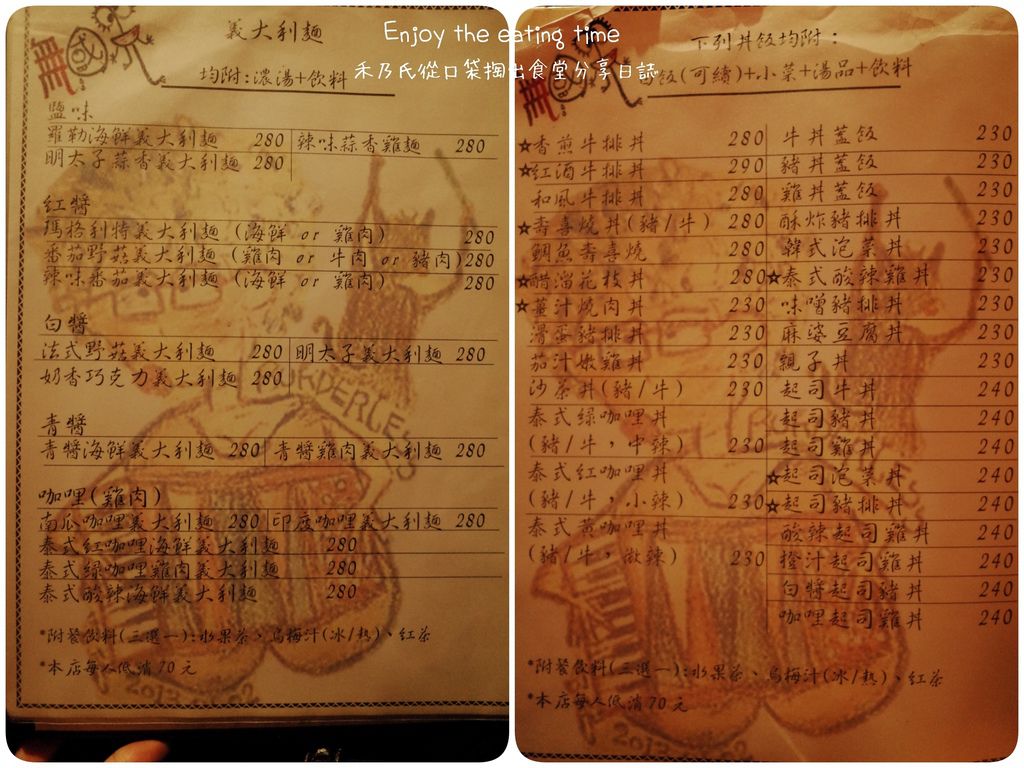 Enjoy the eating time
禾乃氏從口袋掏出食堂分享日誌
義大利麵
均附:濃湯+飲料
鹽味
羅勒海鮮義大利麵 280 辣味蒜香雞麵 280
明太子蒜香義大利麵 280
紅醬
瑪格利特義大利麵 (海鮮 or 雞肉) 280
番茄野菇義大利麵 (雞肉 or 牛肉 or 豬肉) 280
辣味番茄義大利麵 (海鮮 or 雞肉) 280
白醬
法式野菇義大利麵 280 明太子義大利麵 280
奶香巧克力義大利麵 280
青醬
青醬海鮮義大利麵 280 青醬雞肉義大利麵 280
咖哩(雞肉)
南瓜咖哩義大利麵 280 印度咖哩義大利麵 280
泰式紅咖哩海鮮義大利麵 280
泰式綠咖哩雞肉義大利麵 280
泰式酸辣海鮮義大利麵 280
*附餐飲料(三選一):水果茶、烏梅汁(冰/熱)、紅茶
*本店每人低消70元
下列丼飯均附:
飯(可續)+小菜+湯品+飲料
☆香煎牛排丼 280
☆紅酒牛排丼 290
和風牛排丼 280
☆壽喜燒丼(豬/牛) 280
鯛魚壽喜燒 280
☆醋溜花枝丼 280
☆薑汁燒肉丼 230
滑蛋豬排丼 230
茄汁嫩雞丼 230
沙茶丼(豬/牛) 230
泰式綠咖哩丼
(豬/牛,中辣) 230
泰式紅咖哩丼
(豬/牛,小辣) 230
泰式黃咖哩丼
(豬/牛,微辣) 230
牛丼蓋飯 230
豬丼蓋飯 230
雞丼蓋飯 230
酥炸豬排丼 230
韓式泡菜丼 230
☆泰式酸辣雞丼 230
味噌豬排丼 230
麻婆豆腐丼 230
親子丼 230
起司牛丼 240
起司豬丼 240
起司雞丼 240
☆起司泡菜丼 240
☆起司豬排丼 240
酸辣起司雞丼 240
橙汁起司雞丼 240
白醬起司豬丼 240
咖哩起司雞丼 240
*附餐飲料(三選一):水果茶、烏梅汁(冰/熱)、紅茶
*本店每人低消70元